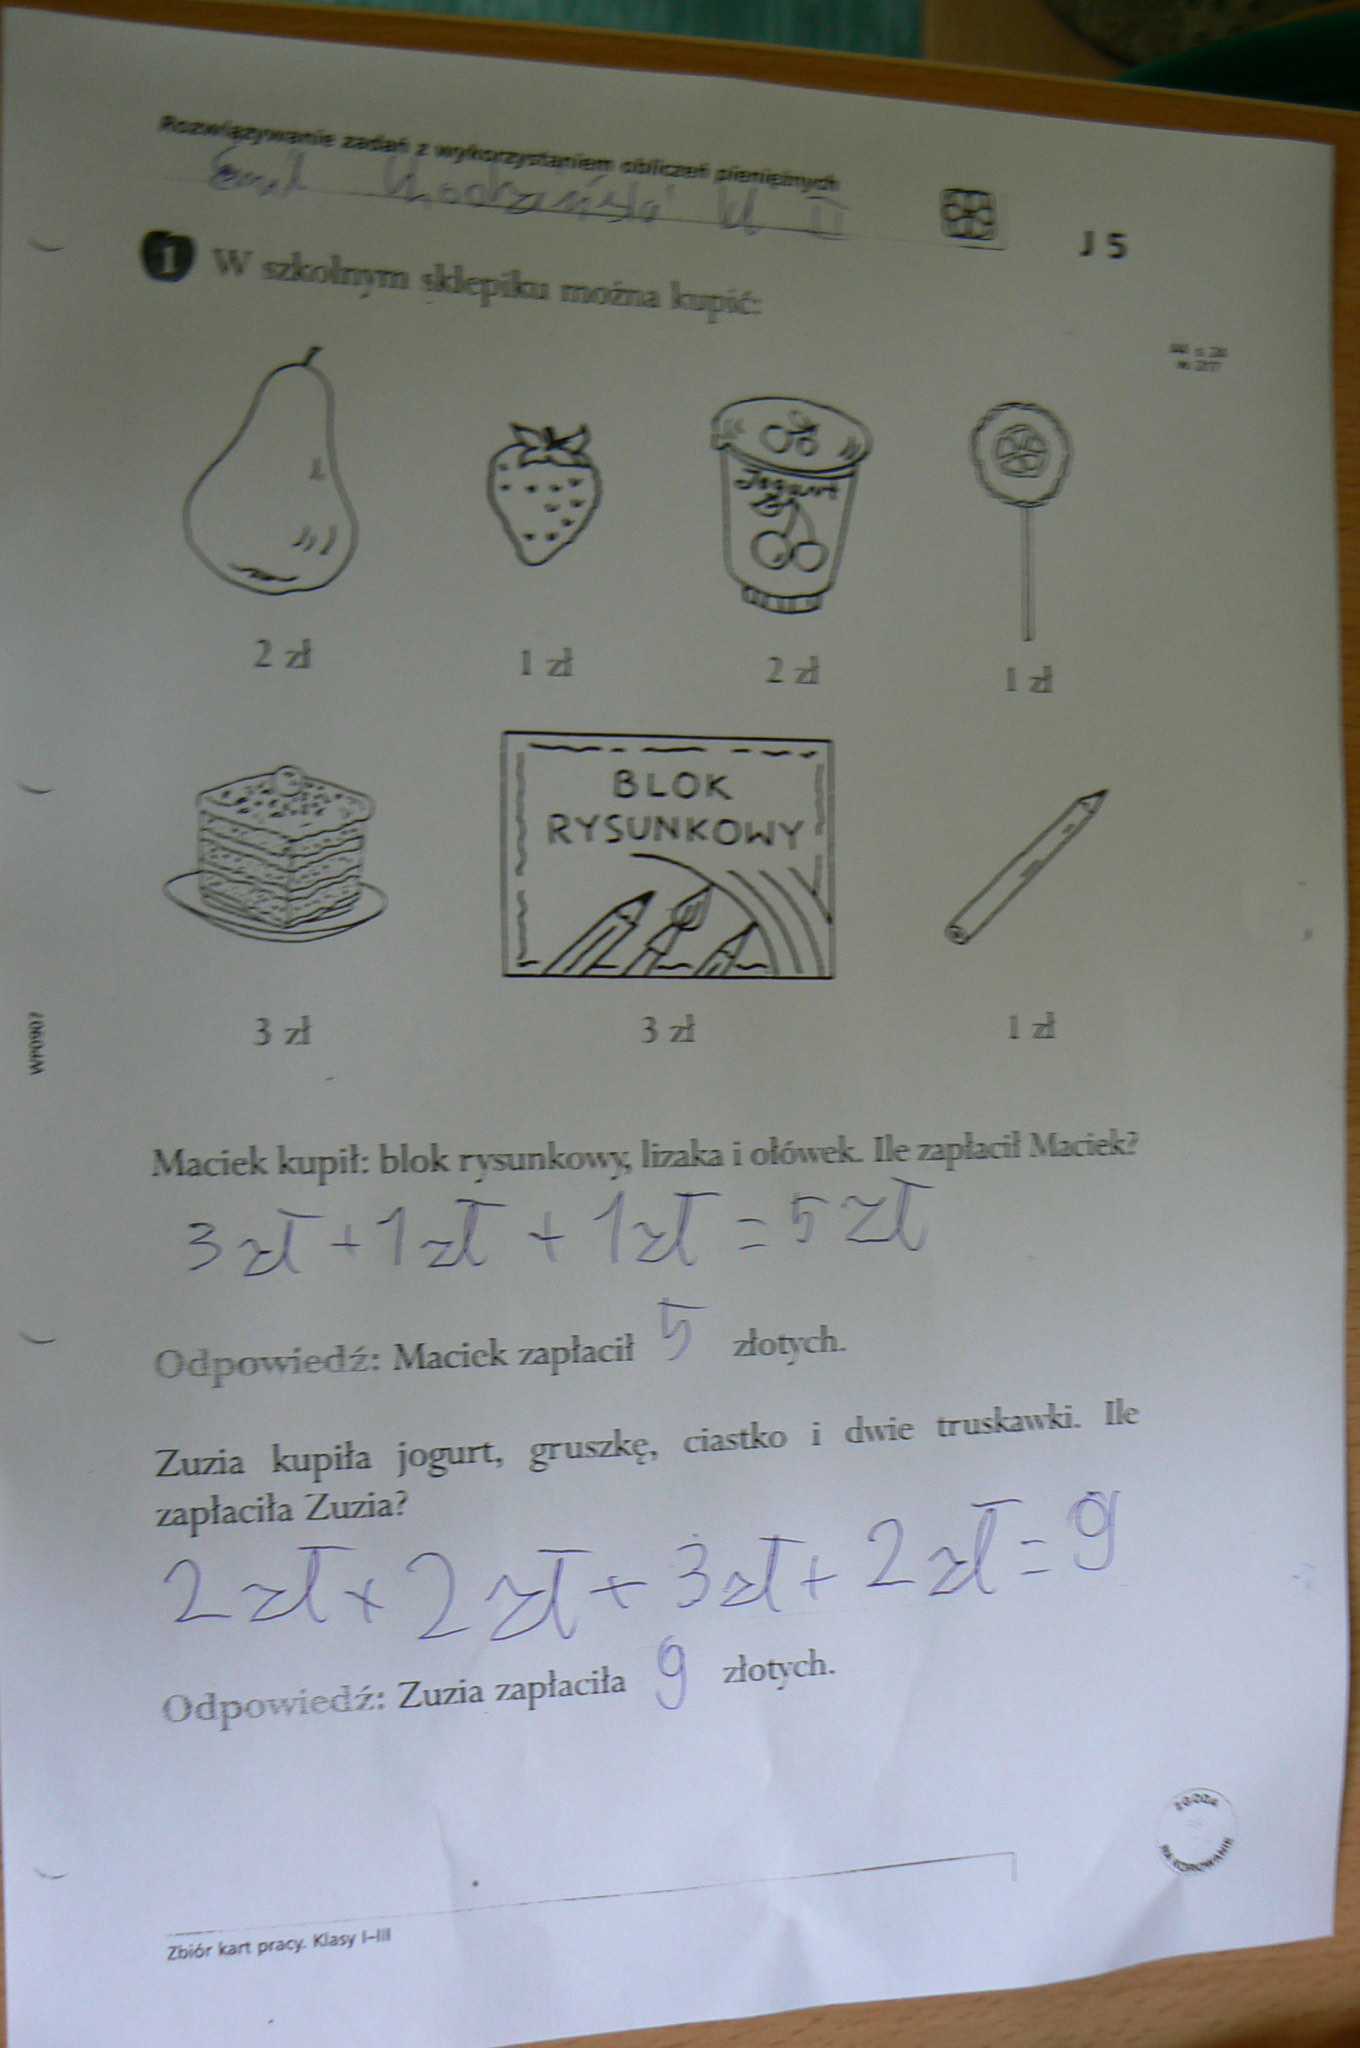 Rozwiązywanie zadań z wykorzystaniem obliczeń pieniężnych
kl II
J 5
1 W szkolnym sklepiku można kupić:
Jogurt
2 zł 1 zł 2 zł 1 zł
BLOK
RYSUNKOWY
3 zł 3 zł 1 zł
WP0907
Maciek kupił: blok rysunkowy, lizaka i ołówek. Ile zapłacił Maciek?
3 zł + 1 zł + 1 zł = 5 zł
Odpowiedź: Maciek zapłacił 5 złotych.
Zuzia kupiła jogurt, gruszkę, ciastko i dwie truskawki. Ile
zapłaciła Zuzia?
2 zł + 2 zł + 3 zł + 2 zł = 9
Odpowiedź: Zuzia zapłaciła 9 złotych.
ZGODA
NA KOPIOWANIE
Zbiór kart pracy. Klasy I–III